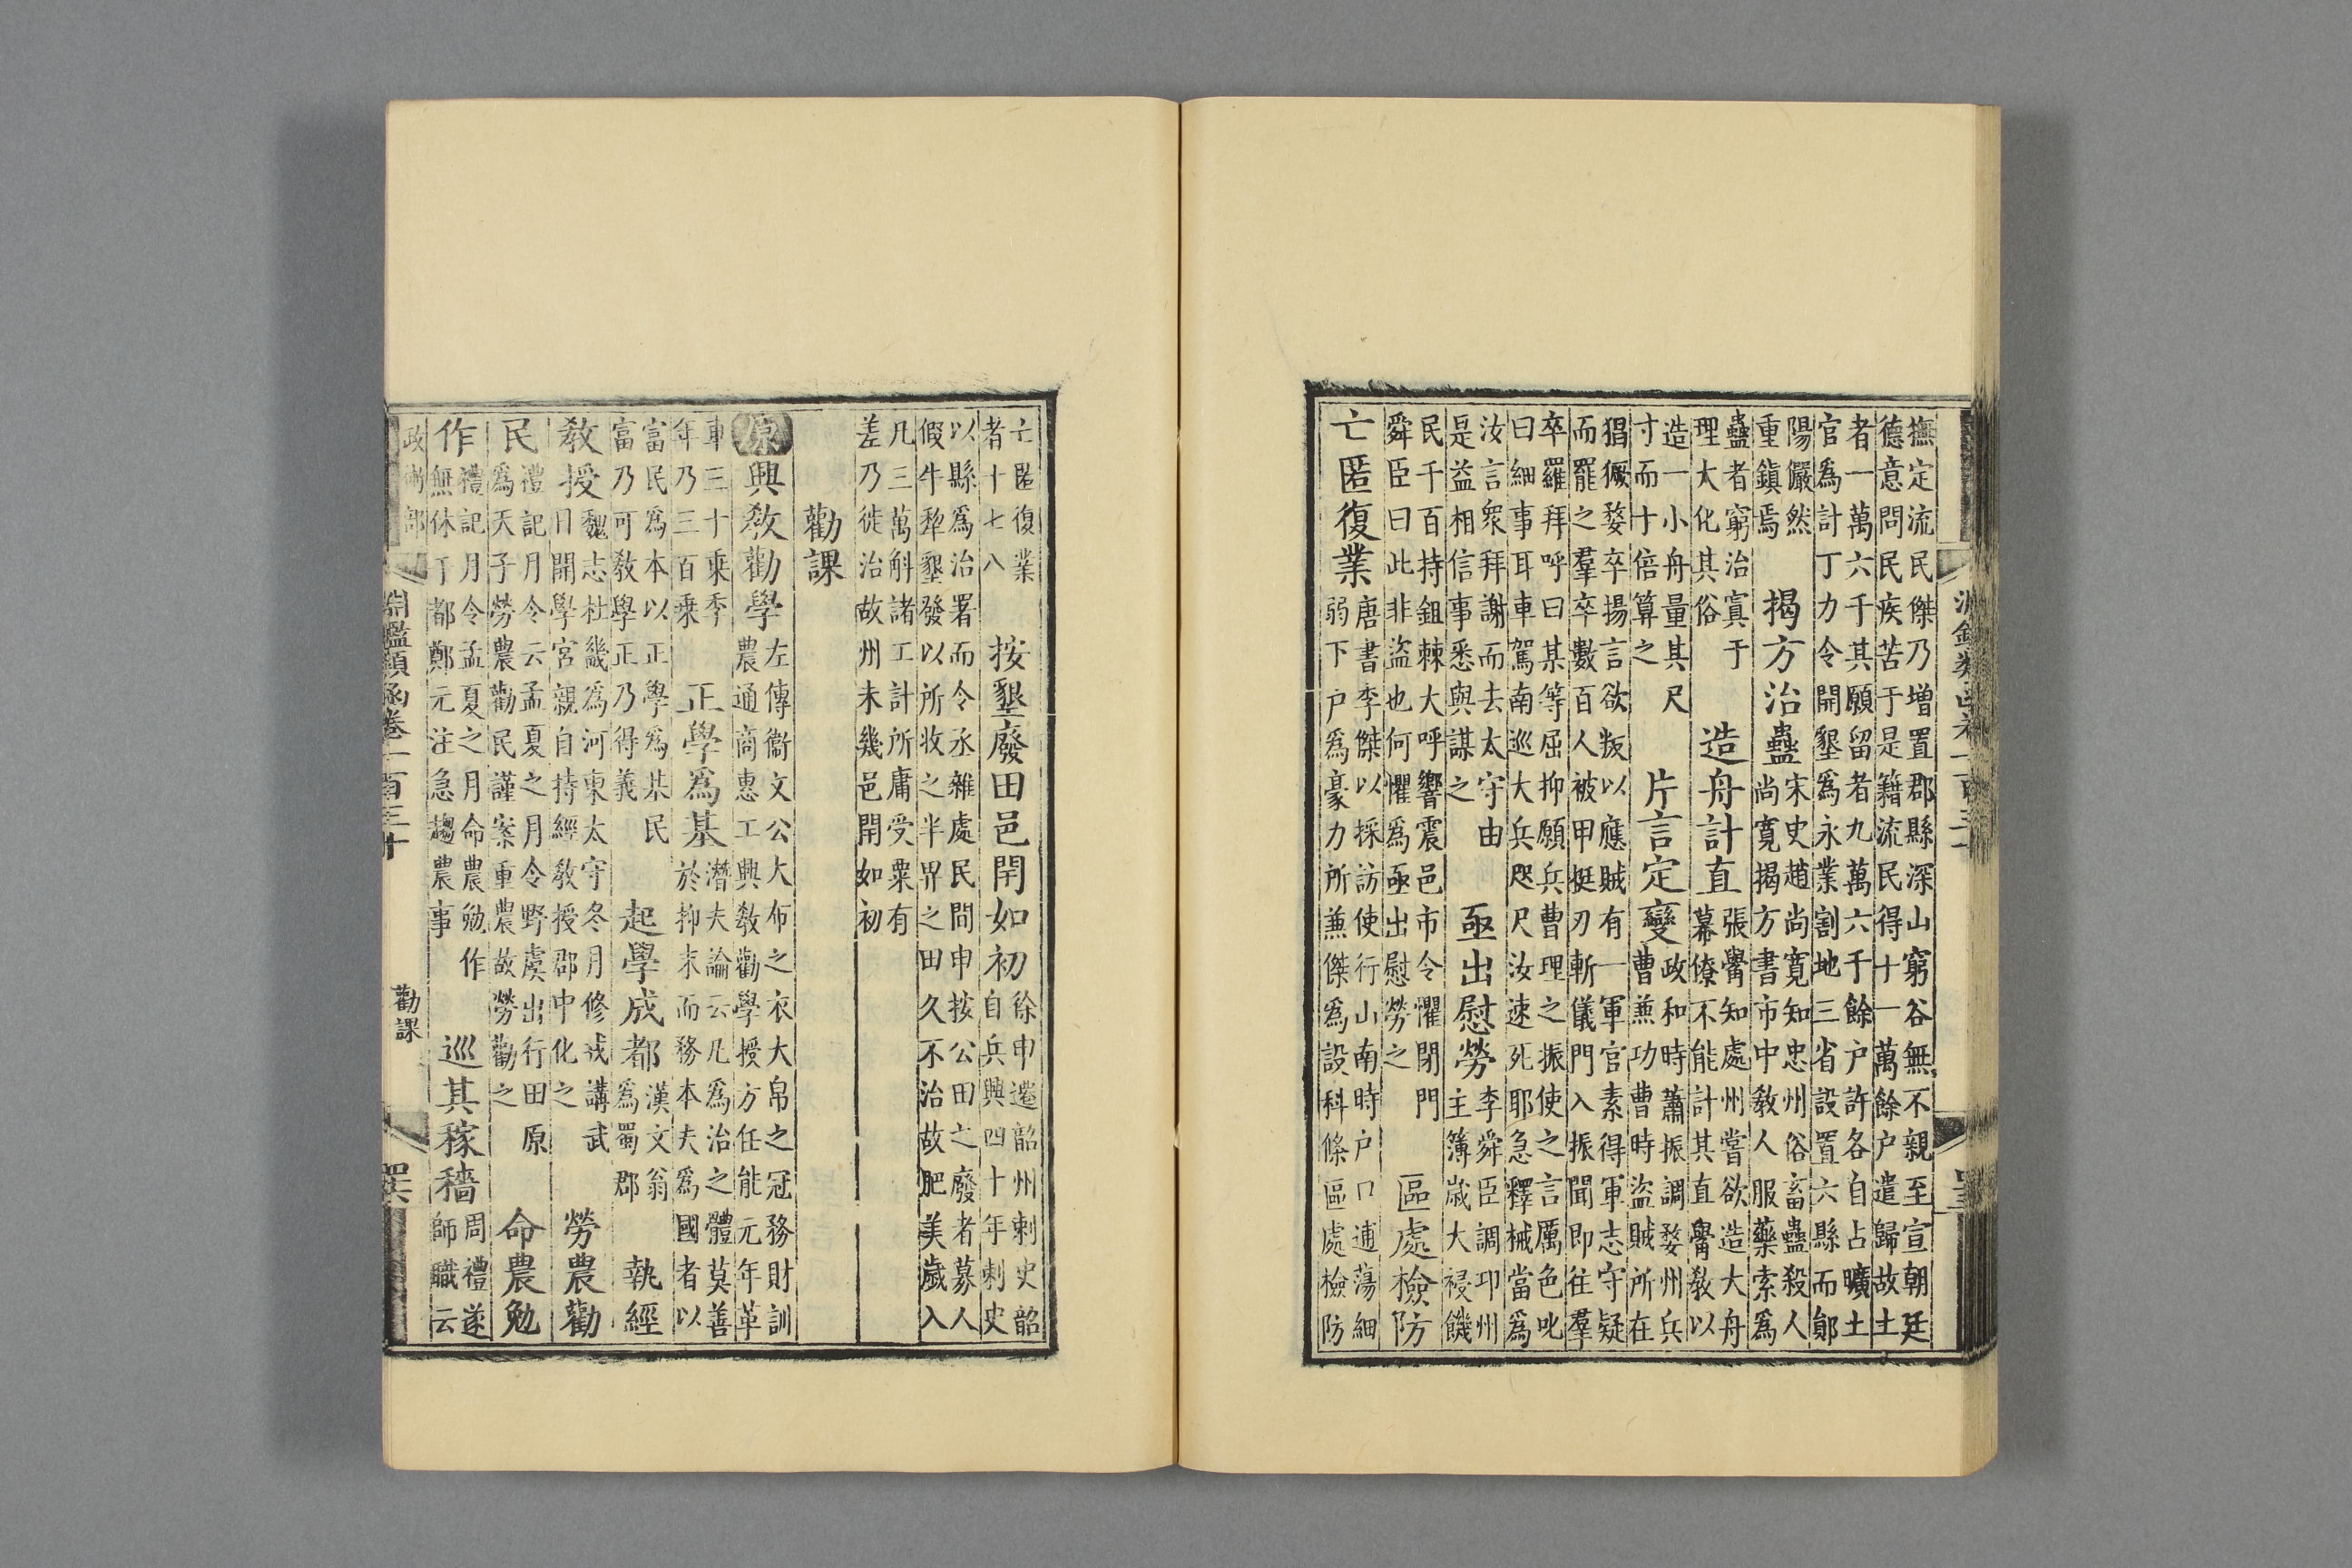 撫定流民傑乃增置郡縣深山窮谷無不親至宣朝廷
德意問民疾苦于是籍流民得十一萬餘户遣歸故土
者一萬六千其願留者九萬六千餘户許各自占曠土
官為計丁力令開墾為永業割地三省設置六縣而鄖
陽儼然
重鎮焉
揭方治蠱
宋史趙尚寬知忠州俗畜蠱殺人
尚寬揭方書市中教人服藥索為
蠱者窮治寘于
理大化其俗
造舟計直
張觷知處州嘗欲造大舟
幕僚不能計其直觷教以
造一小舟量其尺
寸而十倍算之
片言定變
政和時蕭振調婺州兵
曹兼功曹時盜賊所在
猖獗婺卒揚言欲叛以應賊有一軍官素得軍志守疑
而罷之羣卒數百人被甲挺刃斬儀門入振聞即往羣
卒羅拜呼曰某等屈抑願兵曹理之振使之言厲色叱
曰細事耳車駕南巡大兵咫尺汝速死耶急釋械當為
汝言衆拜謝而去太守由
是益相信事悉與謀之
亟出慰勞
李舜臣調邛州
主簿歲大祲饑
民千百持鉏棘大呼響震邑市令懼閉門
舜臣曰此非盜也何懼為亟出慰勞之
區處檢防
亡匿復業
唐書李傑以採訪使行山南時户口逋蕩細
弱下户為豪力所兼傑為設科條區處檢防
亡匿復業
者十七八
按墾廢田邑閈如初
徐申遷韶州刺史韶
自兵興四十年刺史
以縣為治署而令丞雜處民間申按公田之廢者募人
假牛犂墾發以所收之半畀之田久不治故肥美歲入
凡三萬斛諸工計所庸受粟有
差乃徙治故州未幾邑閈如初
勸課
原
興教勸學
左傳衞文公大布之衣大帛之冠務財訓
農通商惠工興教勸學授方任能元年革
車三十乘季
年乃三百乘
正學為基
潛夫論云凡為治之體莫善
於抑末而務本夫為國者以
富民為本以正學為基民
富乃可教學正乃得義
起學成都
漢文翁
為蜀郡
執經
教授
魏志杜畿為河東太守冬月修戎講武
又開學宮親自持經教授郡中化之
勞農勸
民
禮記月令云孟夏之月令野虞出行田原
為天子勞農勸民謹案重農故勞勸之
命農勉
作
禮記月令孟夏之月命農勉作
無休丁都鄭元注急趨農事
巡其稼穡
周禮遂
師職云
淵鑑類函卷一百三十
勸課